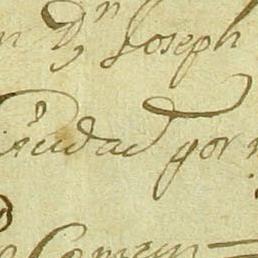 n Dⁿ Joseph
Ciudad por
Comun